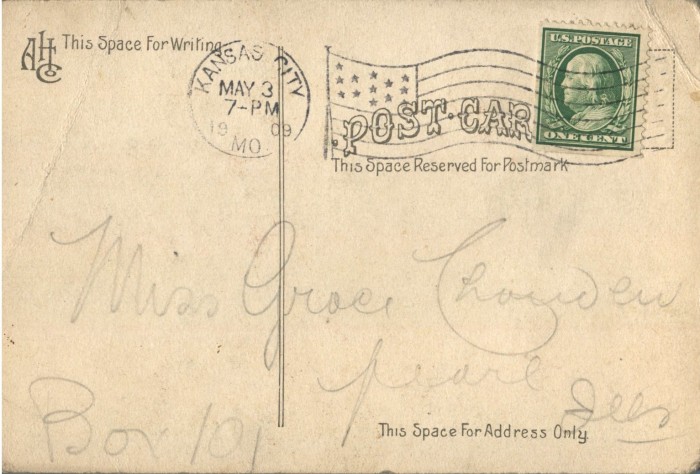 AHCo
This Space For Writing
KANSAS CITY
MAY 3
7-PM
1909
MO.
POST CAR
U.S. POSTAGE
ONE CENT
This Space Reserved For Postmark
Miss Grace
Pearl
Ills
Box 101
This Space For Address Only.